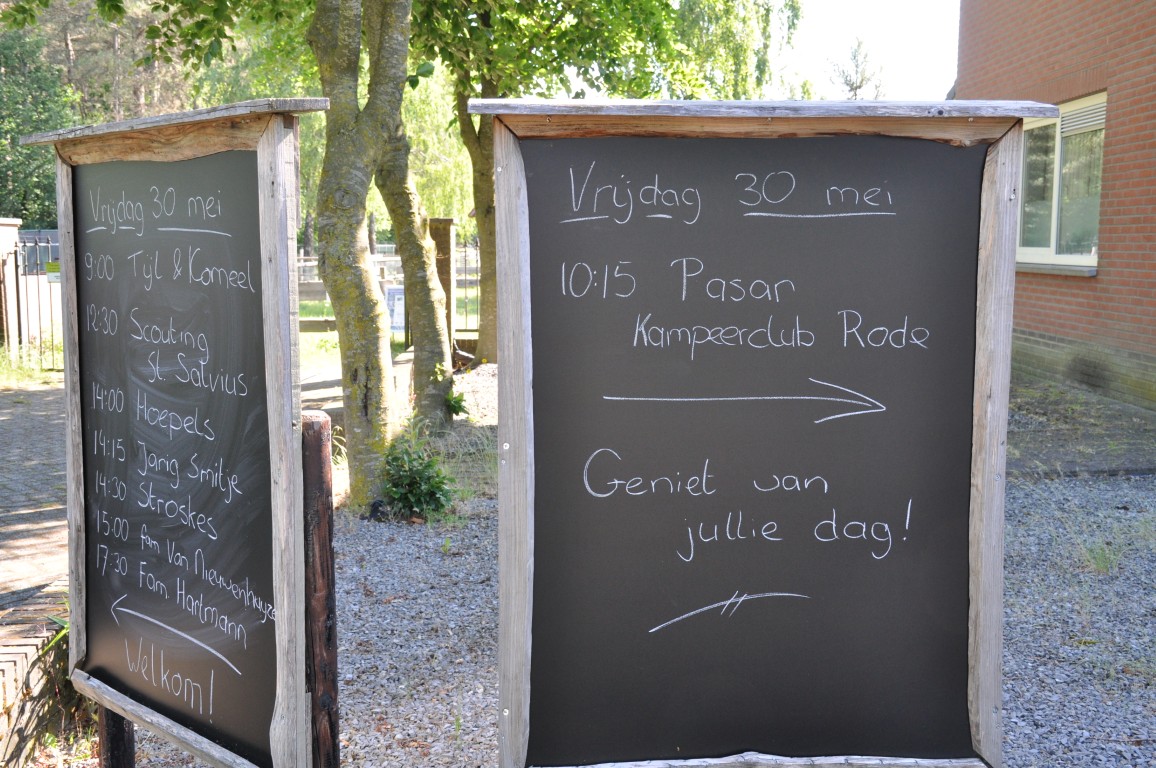 Vrijdag 30 mei
9:00 Tijl & Korneel
12:30 Scouting
St. Salvius
14:00 Hoepels
14:15 Jarig Smitje
14:30 Stroskes
15:00 fam Van Nieuwenhuyze
17:30 Fam. Hartmann
Welkom!
Vrijdag 30 mei
10:15 Pasar
Kampeerclub Rode
Geniet van
jullie dag!